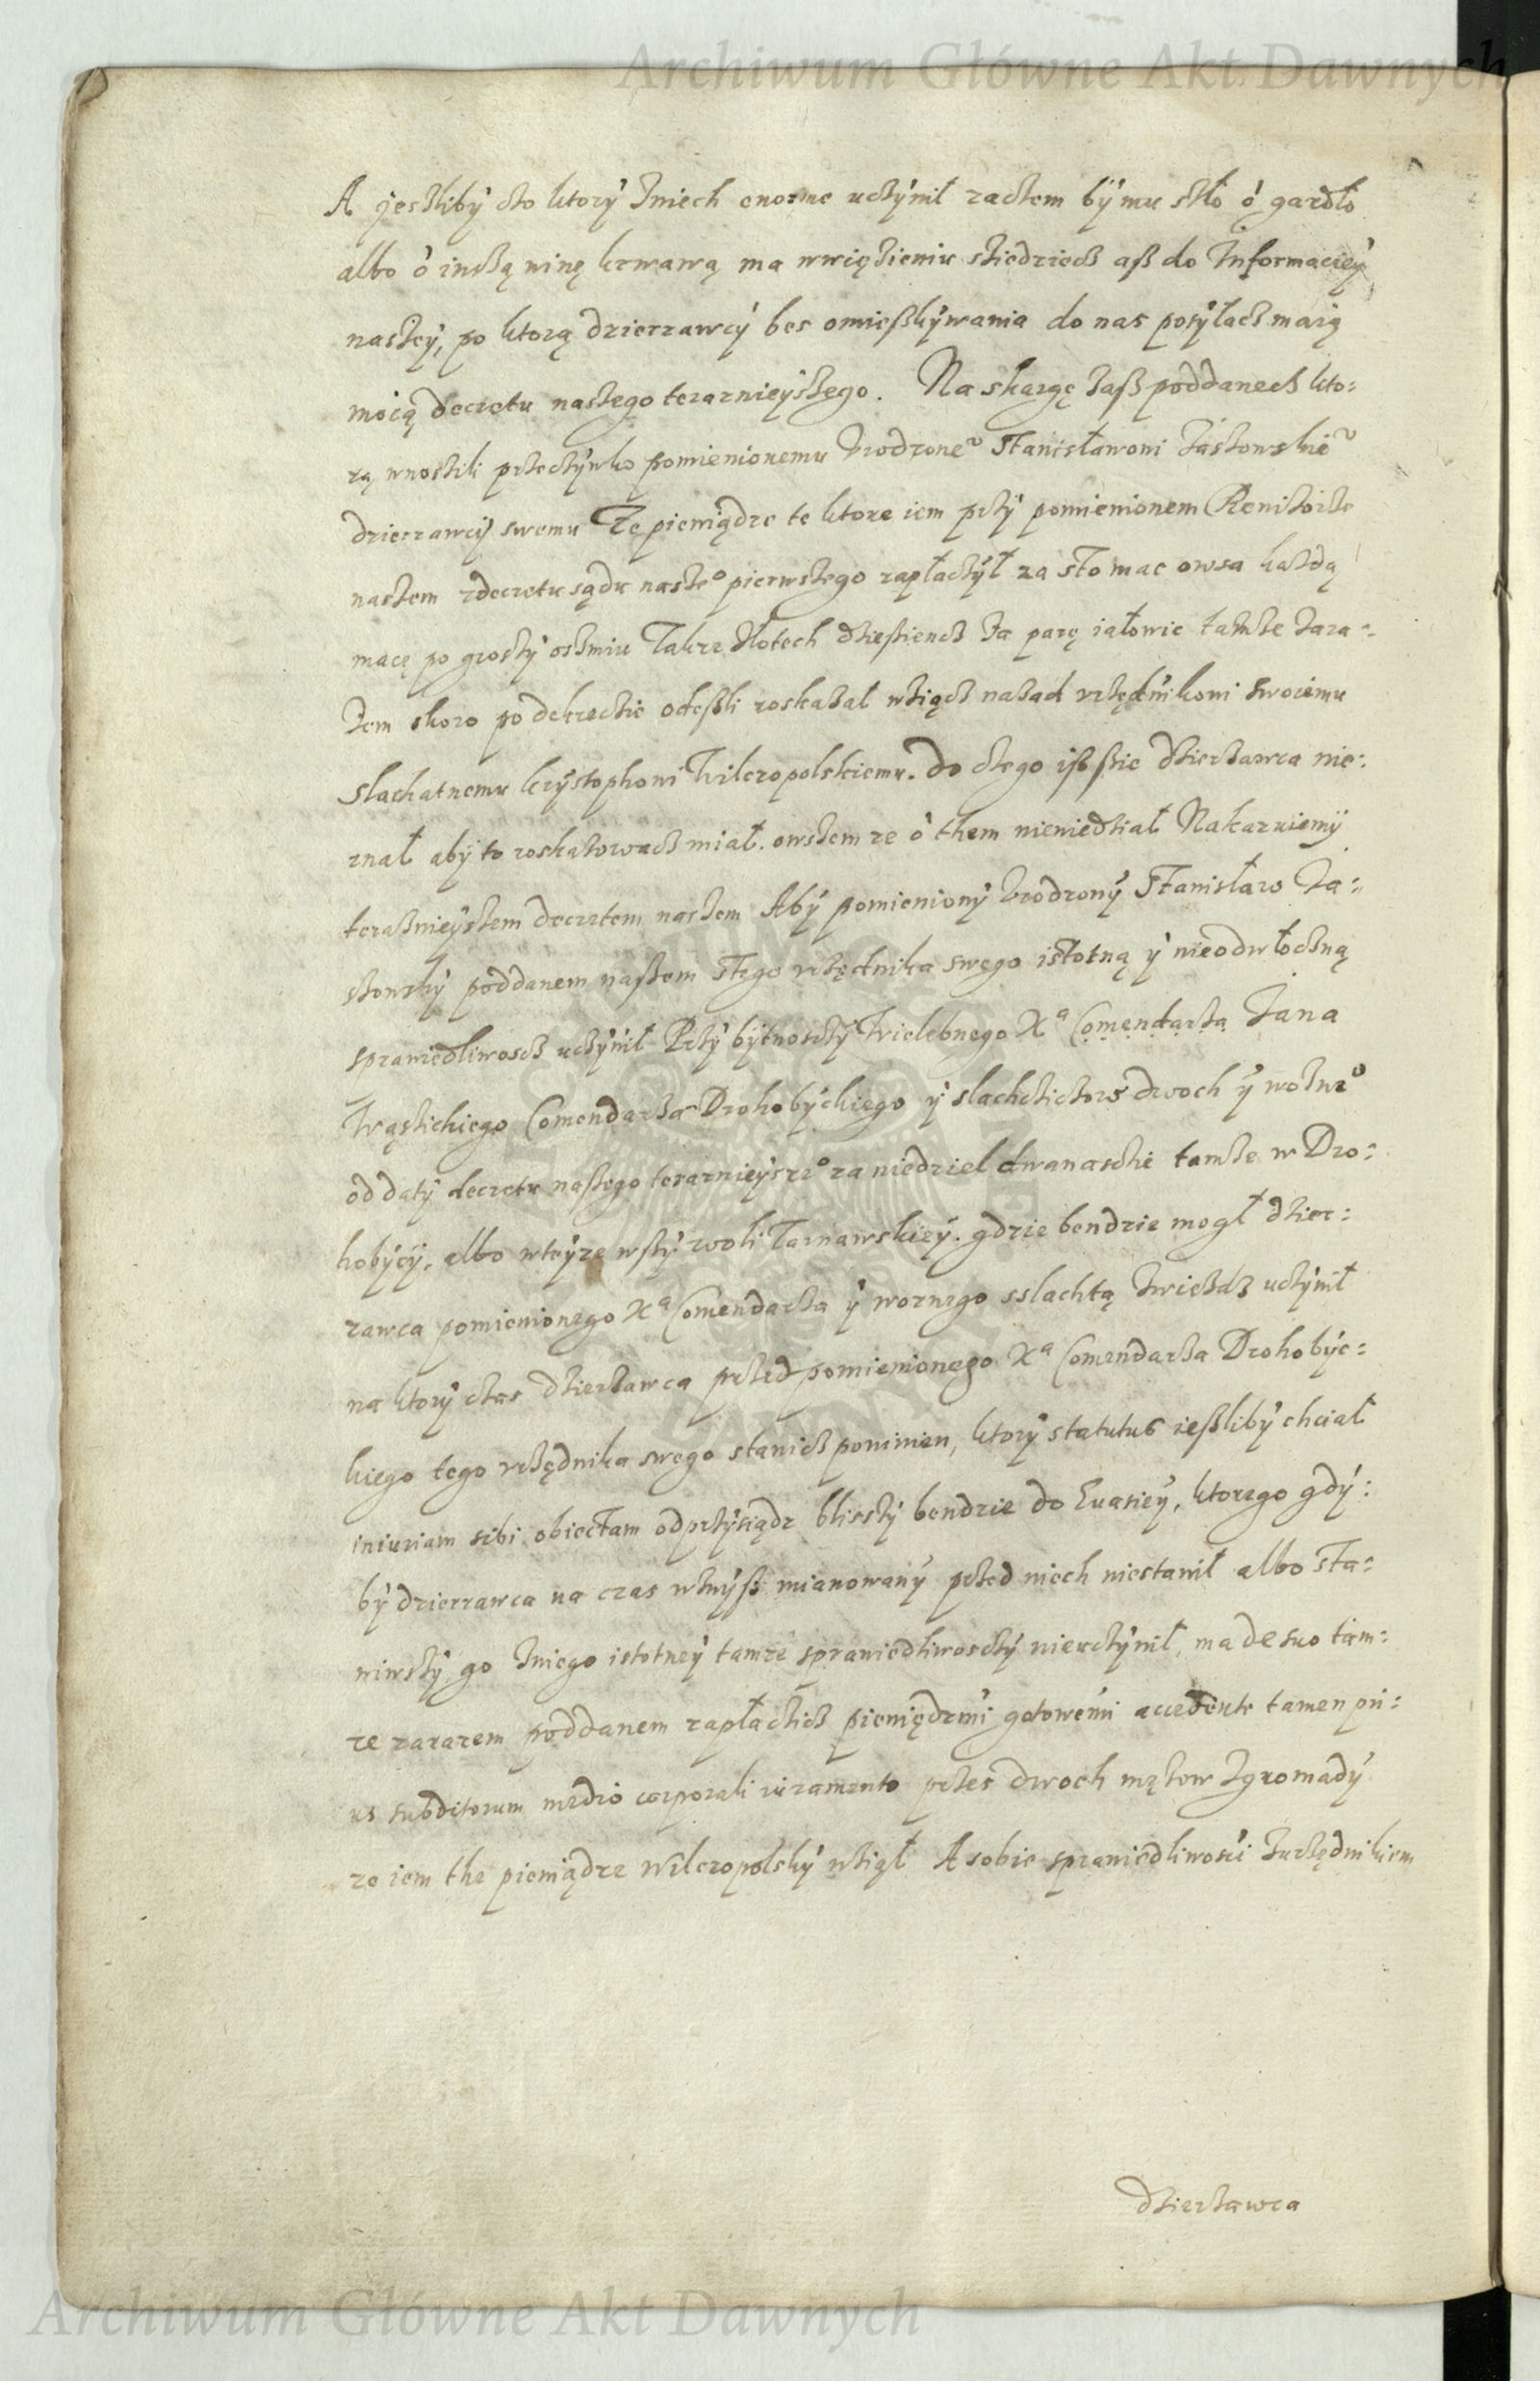 Archiwum Główne Akt Dawnych
A jeszliby czo ktory zniech enorme uczynił zaczem by mu szło o gardło
albo o inszą winę krwawą ma wwięzieniu sziedziecz asz do Informaciey
naszey, po ktorą dzierzawcy bes omieszkywania do nas posyłacz maią
mocą decretu naszego teraznieyszego. Na skargę zasz poddanech kto:
rą wnoszili przeczywko pomienionemu Urodzone° Stanisławowi
dzierzawcy swemu Ze pieniądze te ktore iem przy pomienionem Rewizorze
naszem zdecretu sądu nasze° pierwszego zapłaczył za sto mac owsa każdą
macę po groszy oszmiu Takze Złotech dziesziencz za parę iałowic takze zara:
zem skoro po dekreczie odeszli roskazał wziącz nazad urzędnikowi swoiemu
Slachatnemu Krystophowi Wilczopolskiemu. do czego isz szie dzierzawca nie:
znał aby to roskazowacz miał. owszem ze o them niewiedział Nakazuiemy
teraznieyszem decretem naszem Aby pomieniony Urodzony Stanisław Za:
poddanem naszem stego urzędnika swego istotną y nieodwłoczną
sprawiedliwoscz uczynił Przy bytnosczy Wielebnego X<sup>a</sup> Comendarza Jana
Comendarza Drohobyckiego y slachczicow dwoch y wozne°
od daty decretu naszego teraznieysze° za niedziel dwanasczie tamze w Dro:
hobyczy, albo wteyze wszy woli Tarnawskiey. gdzie bendzie mogł dzier:
zawca pomienionego X<sup>a</sup> Comendarza y woznego sslachtą zwieszdz uczynił
na ktory czas dzierzawca przed pomienionego X<sup>a</sup> Comendarza Drohobyc:
kiego tego urzędnika swego stawicz powinien, ktory statutus ieszliby chciał
iniuriam sibi obiectam odprzysiądz bliszszy bendzie do Euasiey, ktorego gdy:
by dzierzawca na czas wznysz mianowany przed niech niestawił albo sta:
wiwszy go zniego istotney tamze sprawiedliwosczy nieuczynił, ma de suo tam:
ze zarazem poddanem zapłaczicz pieniędzmi gotowemi accedente tamen pri:
us subditorum medio corporali iuramento przes dwoch mężow zgromady
ze iem the pieniądze Wilczopolsky wziął A sobie sprawiedliwosci zurzędnikiem
dzierzawca
Archiwum Główne Akt Dawnych